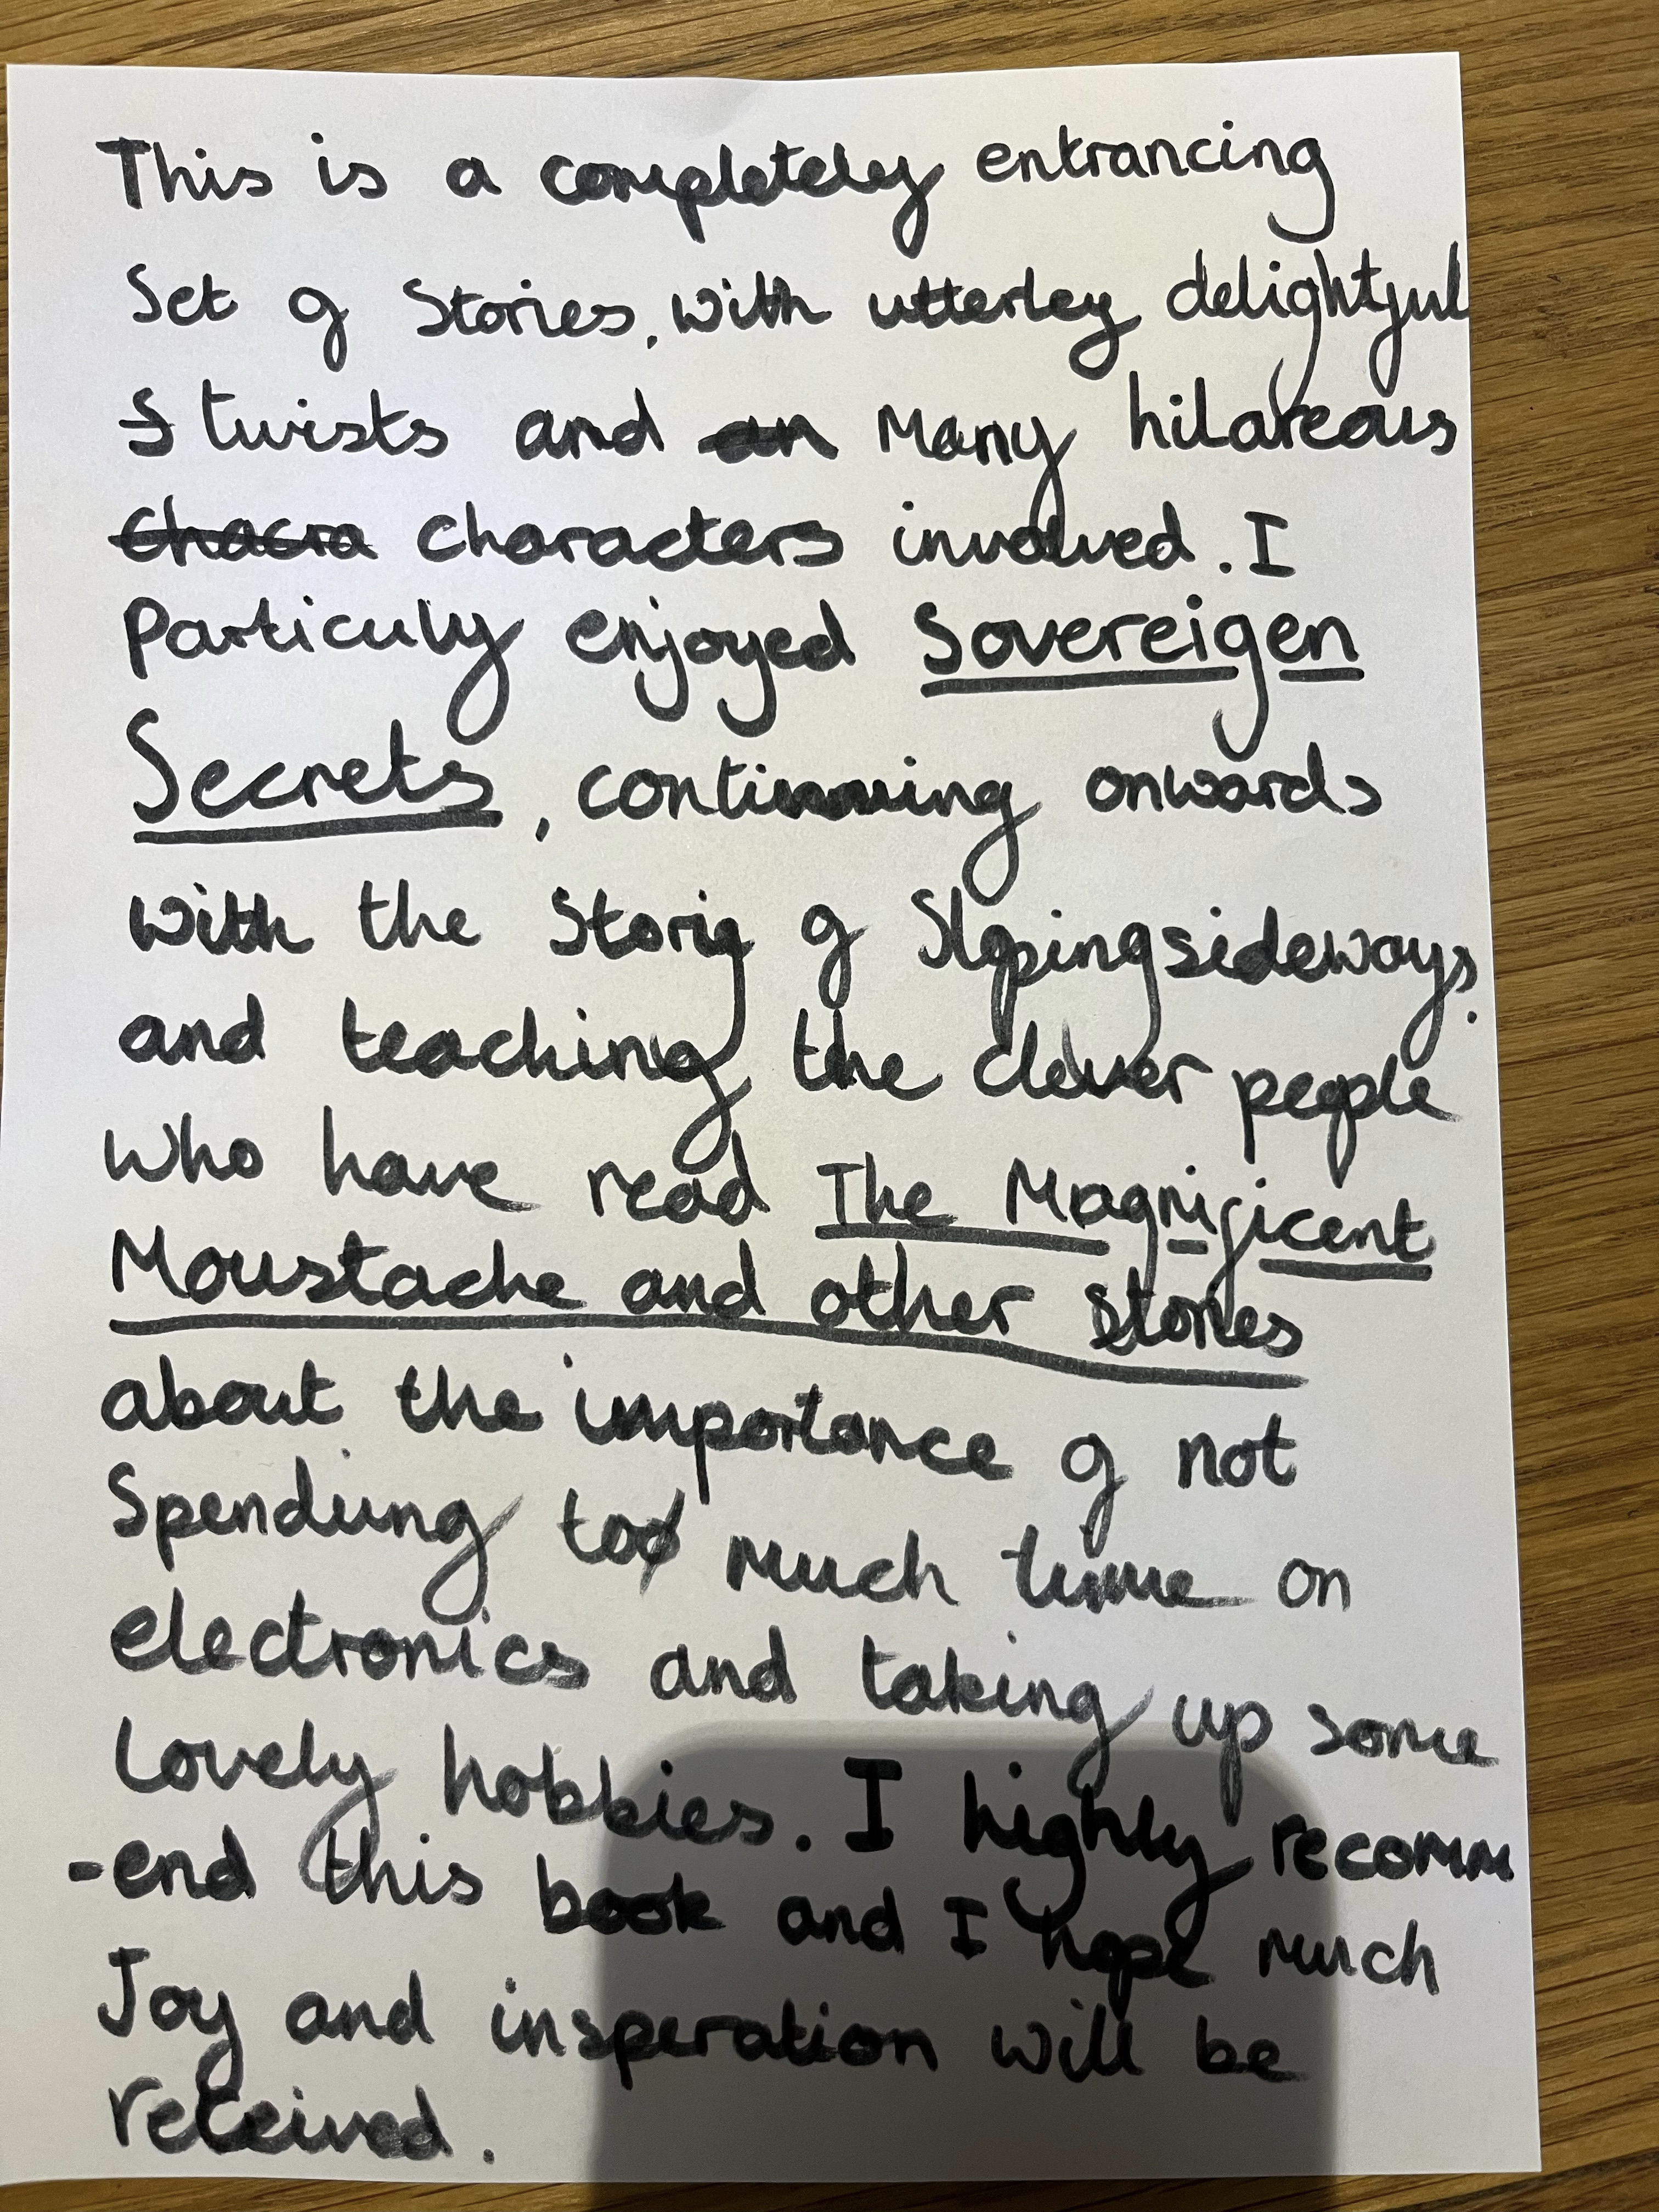 This is a completely entrancing
Set of Stories, with utterley delightful
twists and Many hilareous
characters involved. I
Particuly enjoyed Sovereigen
Secrets, continuing onwards
with the Storiy of Slopingsideways,
and teaching the clever people
who have read The Magnificent
Moustache and other stories
about the importance of not
Spending too much time on
electronics and taking up some
Lovely hobbies. I highly recomm
-end this book and I hope much
Joy and insperation will be
received.